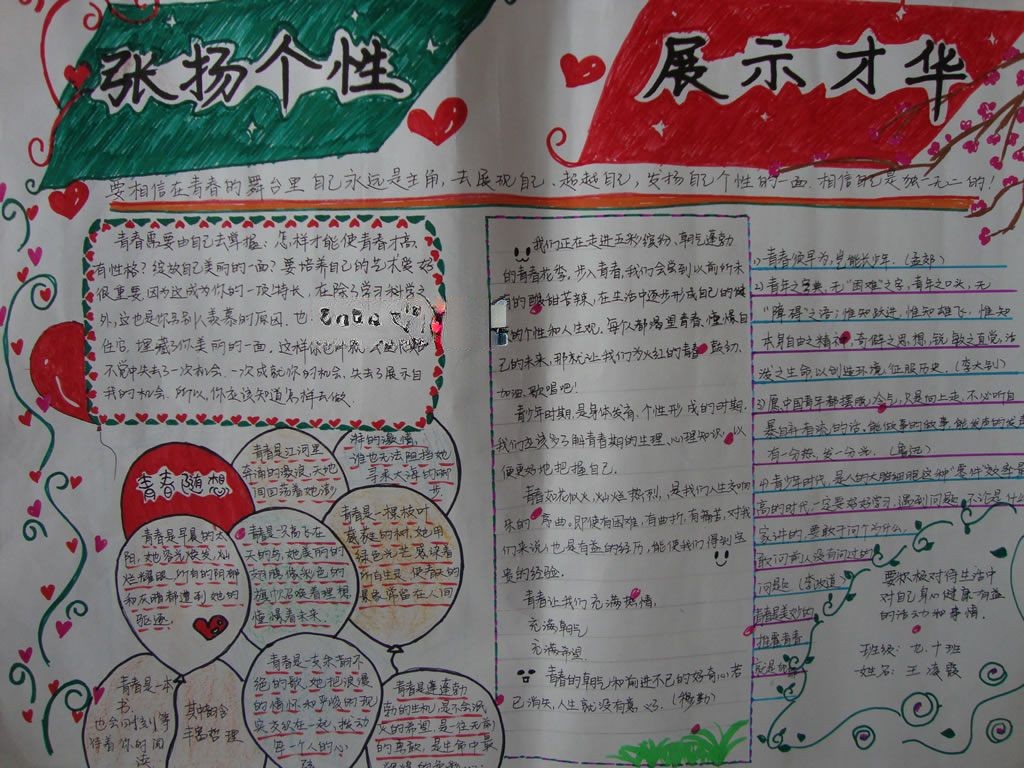 张扬个性
展示才华
要相信在青春的舞台里自己永远是主角,去展现自己、超越自己,发扬自己个性的一面.相信自己是独一无二的!
青春需要由自己去掌握:怎样才能使青春才高、
有性格?绽放自己美丽的一面?要培养自己的艺术爱好
很重要.因为这成为你的一项特长,在除了学习科学之
外,这也是你另别人羡慕的原因.也
住它,埋藏了你美丽的一面.这样你也
不觉中失去了一次机会.一次成就你的机会.失去了展示自
我的机会.所以,你应该知道怎样去做.
青春随想
青春是江河里
奔涌的激浪,天地
间回荡着她澎
湃的激情,
谁也无法阻挡她
寻求大海的脚
步.
青春是早晨的太
阳,她容光焕发,灿
烂耀眼,所有的阴郁
和灰暗都遭到她的
驱逐.
青春是一只奋飞在
天的鸟,她美丽的
翅膀像彩色的
旗帜召唤着理想
憧憬着未来.
青春是一棵枝叶
茂雅的树,她用
绿色光芒感染着
所有生灵,使春天的
景象常留在人间
青春是一本
书.
也会同时刻等
待着你的阅
读
其中的含
丰富哲理
青春是一支永朝不
绝的歌,她把浪漫
的情怀和严峻的现
实交织在一起,拨动
每一个人的心
弦
青春是蓬蓬勃
勃的生机,是不会泯
灭的希望,是一往无前
的勇敢,是生命中最
我们正在走进五彩缤纷、朝气蓬勃
的青春花季,步入青春,我们会尝到以前所未
有的酸甜苦辣,在生活中逐步形成自己的健
的个性和人生观,每个人都渴望青春,憧憬自
己的未来,那就让我们为火红的青春鼓劲、
加油、歌唱吧!
青少年时期,是身体发育、个性形成的时期.
我们应该多了解青春期的生理、心理知识,以
便更好地把握自己.
青春如花似火,灿烂热烈,是我们人生交响
乐的序曲.即使有困难,有曲折,有痛苦,对我
们来说,也是有益的经历,能使我们得到宝
贵的经验.
青春让我们充满热情,
充满朝气
充满希望.
青春的朝气和向进不已的好奇心若
已消失,人生就没有意义了.(穆勒)
1)青春须早为,岂能长少年.(孟郊)
2)青年之字典,无“困难”之字,青年之口头,无
“障碍”之语;惟知跃进,惟知雄飞,惟知
本身自由之精神,奇僻之思想,锐敏之直觉,活
泼之生命,以创造环境,征服历史.(李大钊)
3)愿中国青年都摆脱冷气,只是向上走,不必听自
暴自弃者流的话.能做事的做事,能发声的发声
有一分热,发一分光.(鲁迅)
4)青少年时代,是人的大脑细胞这种“零件”效率最
高的时代.一定要好好学习,遇到问题,不论是什么
家讲的,要敢于问个为什么.
敢问前人没有问过的
问题.(李政道)
青春是美妙的
挥霍青春
就是
要积极对待生活中
对自己身心健康有益
的活动和事情.
班级:七.十班
姓名:王凌霞